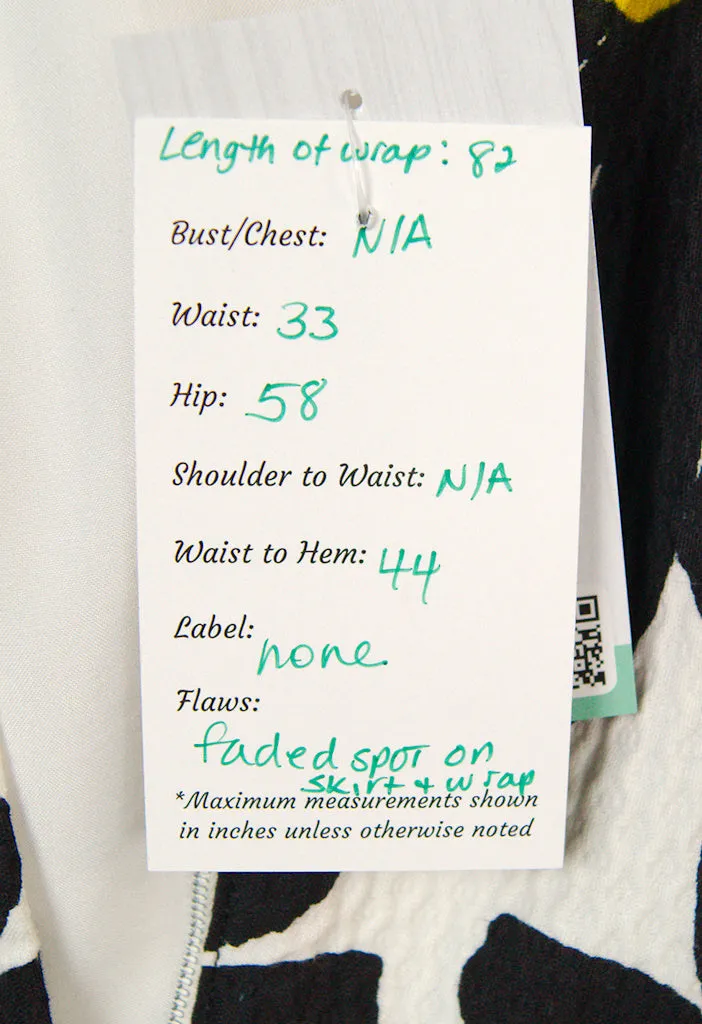 Length of wrap: 82
Bust/Chest: N/A
Waist: 33
Hip: 58
Shoulder to Waist: N/A
Waist to Hem: 44
Label: none
Flaws:
faded spot on
skirt + wrap
*Maximum measurements shown
in inches unless otherwise noted